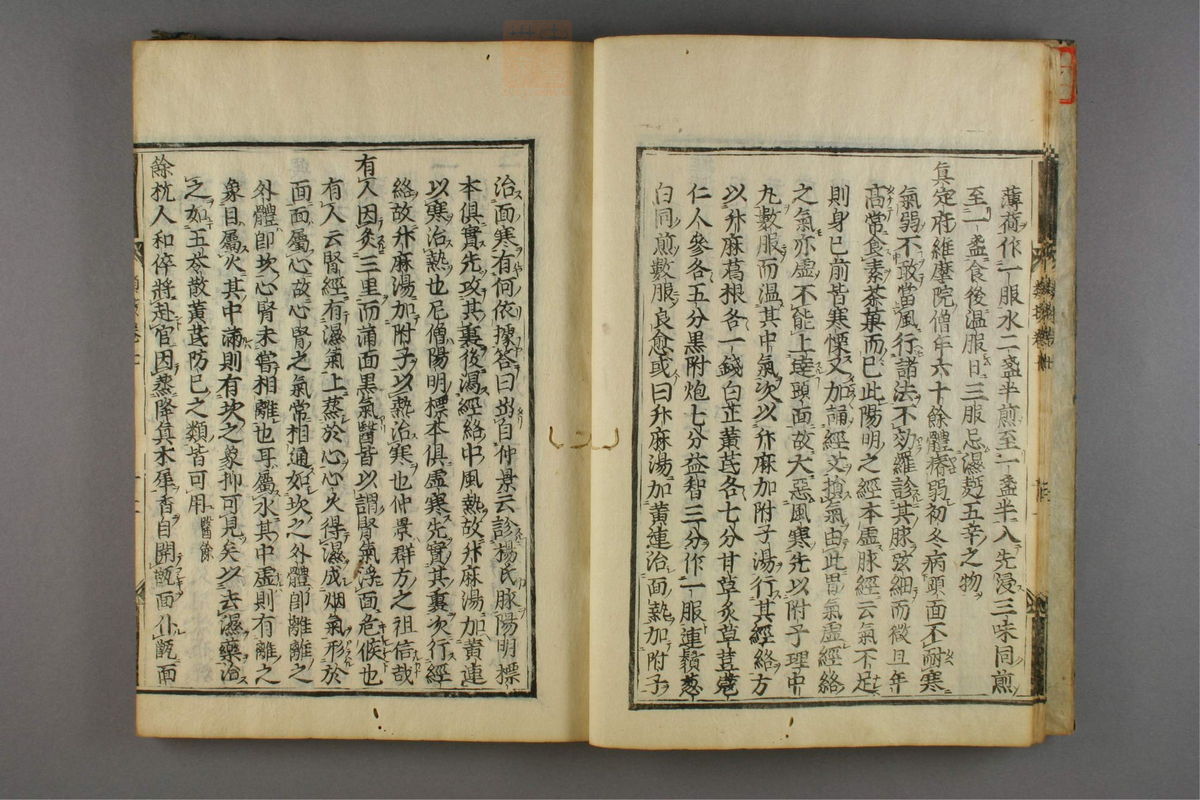 薄荷作一服水二盞半煎至一盞半八先浸三味同煎
至一盞食後溫服日三服忌濕麪五辛之物
真定府維摩院僧年六十餘體瘠弱初冬病頭面不耐寒
氣弱不敢當風行諸法不効羅診其脉弦細而微且年
高常食素茶菓而已此陽明之經本虛脉經云氣不足
則身已前皆寒慄又加誦經文損氣由此胃氣虛經絡
之氣亦虛不能上達頭面故大惡風寒先以附子理中
丸數服而溫其中氣次以升麻加附子湯行其經絡方
以升麻葛根各一錢白芷黃芪各七分甘草炙草荳蔲
仁人參各五分黑附炮七分益智三分作一服連鬚葱
白同煎數服良愈或曰升麻湯加黃連治面熱加附子
治面寒有何依據答曰出自仲景云診楊氏脉陽明標
本俱實先攻其裏後瀉經絡中風熱故升麻湯加黃連
以寒治熱也尼僧陽明標本俱虛寒先實其裏次行經
絡故升麻湯加附子以熱治寒也仲景群方之祖信哉
有人因灸三里而滿面黑氣醫皆以謂腎氣浮面危候也
有人云腎經有濕氣上蒸於心心火得濕成烟氣形於
面面屬心故心腎之氣常相通如坎之外體卽離離之
外體卽坎心腎未嘗相離也耳屬水其中虛則有離之
象目屬火其中滿則有坎之象抑可見矣以去濕藥治
之如五苓散黃芪防已之類皆可用醫餘
餘杭人和倅將赴官因蒸降眞木犀香自開甑面仆甑面